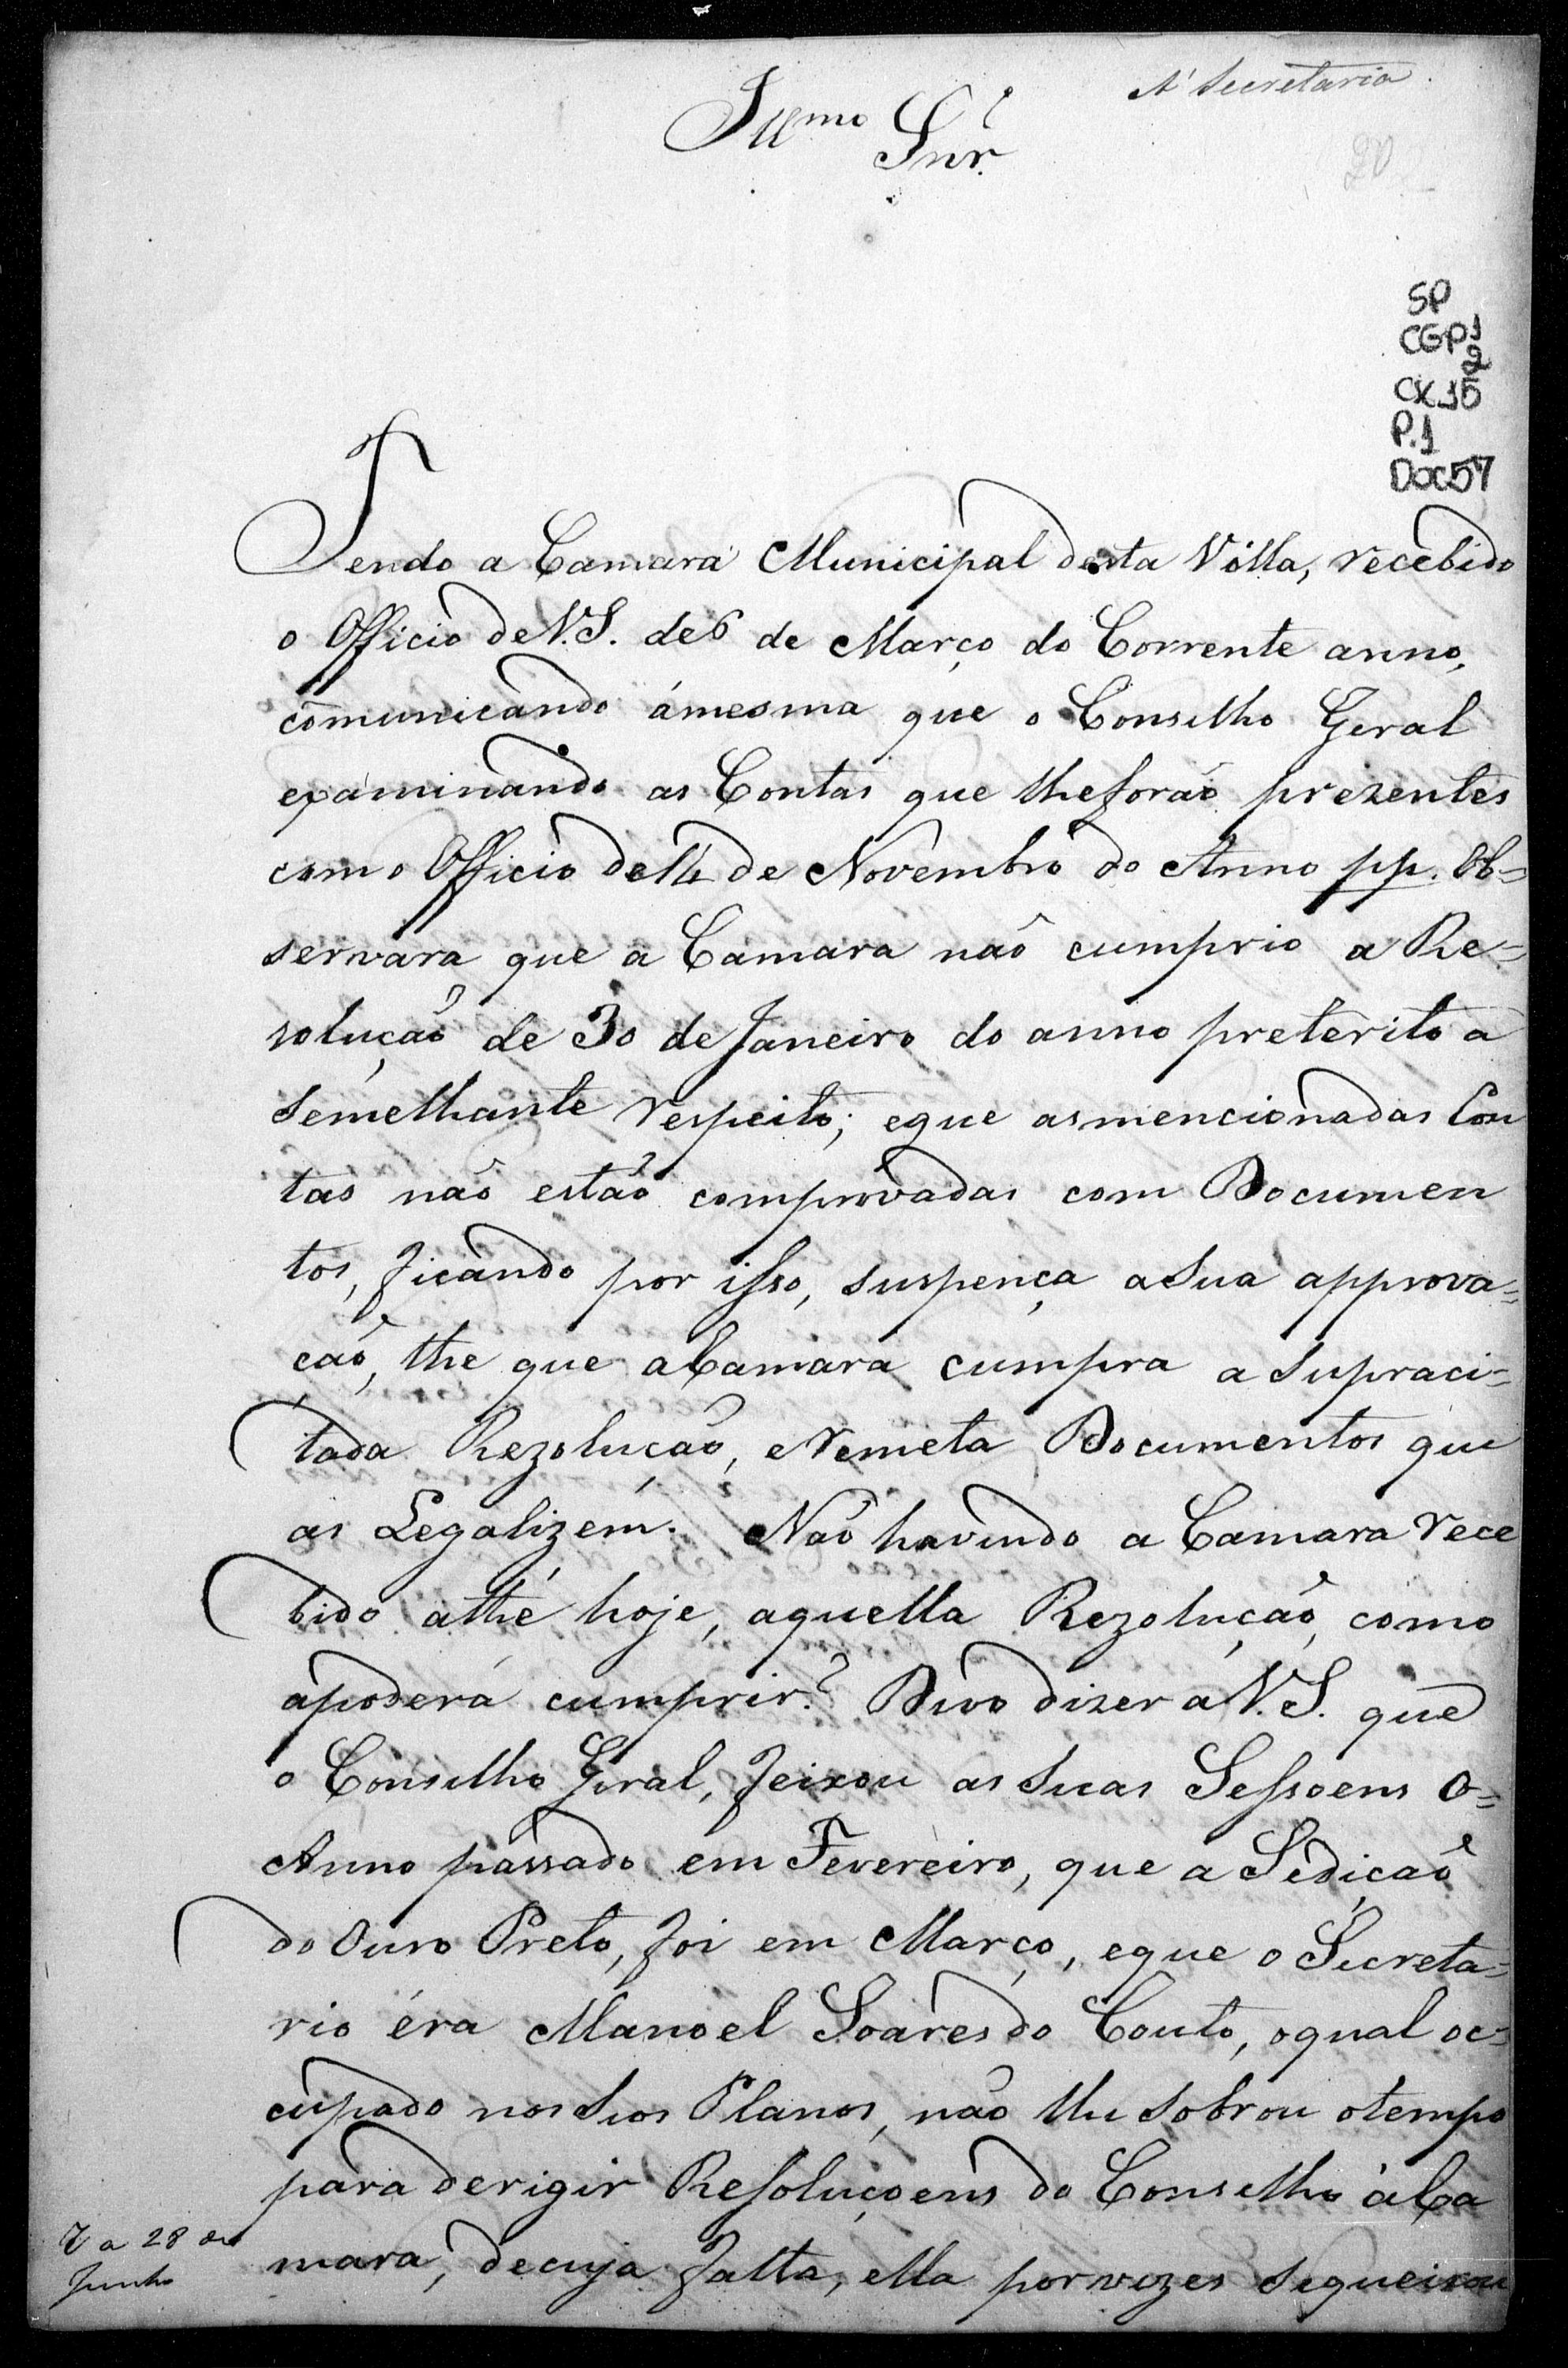 A' Secretaria
Illmo Snr.
20
SP
CGP1
2
CX.15
P.1
DOC57
Tendo a Camara Municipal desta Villa, recebido
o Officio de V.S. de 6 de Março do Corrente anno,
cōmunicando ámesma que o Conselho Geral
examinando as Contas que lheforaõ prezentes
como Officio de 14 de Novembro do Anno pp. Ob=
servara que a Camara naõ cumprio a Re=
soluçaõ de 30 de Janeiro do anno preterito a
semelhante respeito; eque asmencionadas Con
tas naõ estaõ comprovadas com Documen
tos, ficando por isso, suspença asua approva=
çaõ, the que aCamara cumpra a supraci=
tada Rezoluçaõ, eremeta Documentos que
as Legalizem. Naõ havendo a Camara rece
bido athé hoje, aquella Rezoluçaõ, como
apoderá cumprir? Devo dizer a V.S. que
o Conselho Geral, feixou as suas Sessoens o=
Anno passado em Fevereiro, que a Sediçaõ
do Ouro Preto, foi em Março, eque o Secreta=
rio éra Manoel Soares do Couto, oqual oc=
cupado nos seos Planos, naõ lhe sobrou otempo
para derigir Resoluçoens do Conselho áCa
mara, decuja falta, ella porvezes sequeixou
a 28 de
Junho